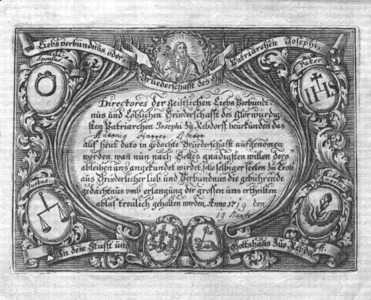 Liebsverbündnus oder
Bruederschafft des H.
Patriarchen Josephi:
Sponsus
Pater
IHS
Directores der Geistlichen Liebs Verbünt:
nus und Löblichen Bruederschafft des Glorwürdig
sten Patriarchen Josephi zu Rebdorff beurkunden das
auf heut dato in gedachte Bruederschafft aufgenomen
worden, wan nun nach Gottes gnädigsten willen dero
ableiben uns angekündet wirdet, solle selbiger Seelen zu Trost
aus Bruederlicher lieb und Verbündnus die gebührende
gedächtnus und erlangung der grossen uns ertheilten
ablas treulich gehalten werden, Anno 17 19 den
19 Marti
Justus
In dem Stüfft und
Gottshaus Zue Rebdorff.